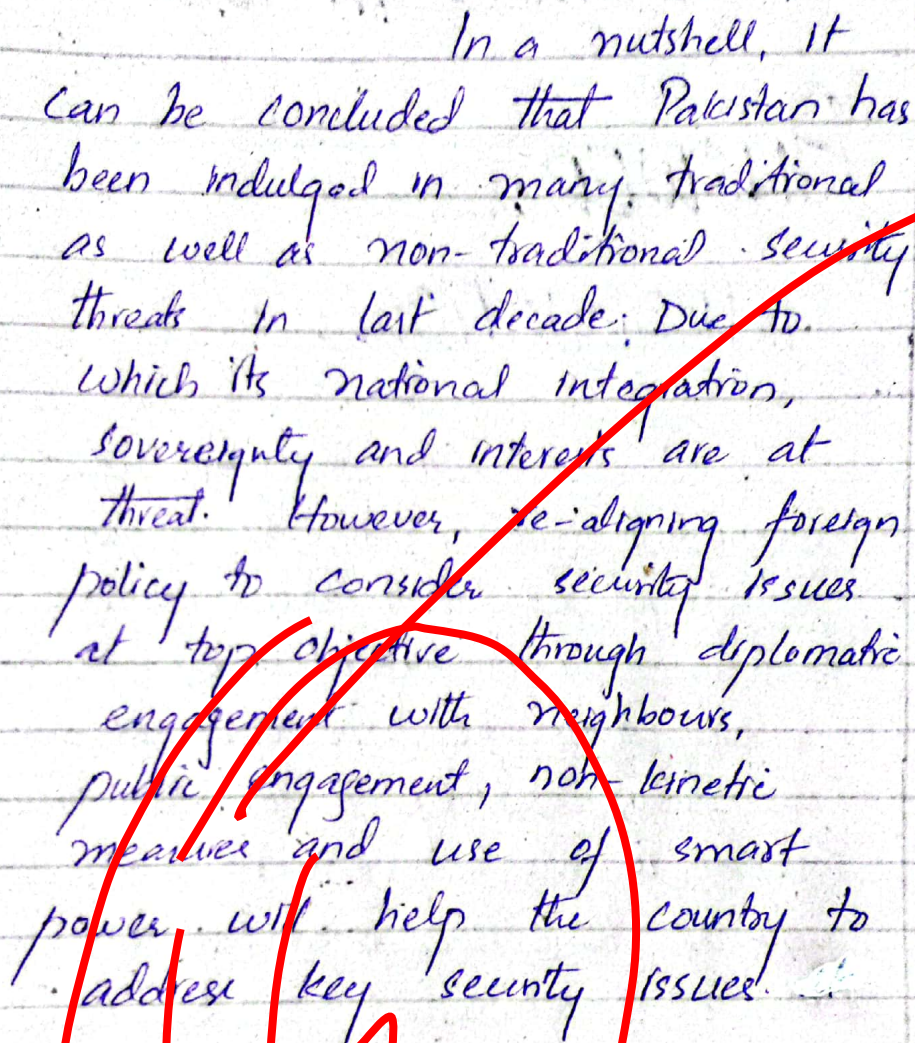 In a nutshell, it
can be concluded that Pakistan has
been indulged in many traditional
as well as non-traditional security
threats in last decade. Due to
which its national integration,
sovereignty and interests are at
threat. However, re-aligning foreign
policy to consider security issues
at top objective through diplomatic
engagement with neighbours,
public engagement, non-kinetic
measures and use of smart
power will help the country to
address key security issues.